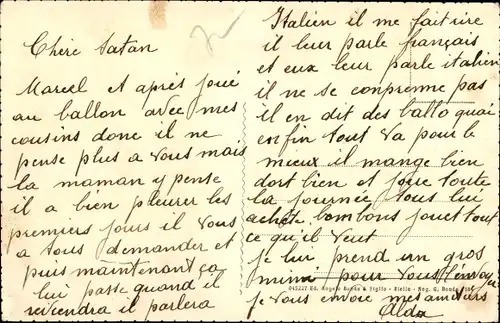 Chère tatan
Marcel et après joué
au ballon avec mes
cousins donc il ne
pense plus a vous mais
la maman y pense
il a bien pleurer les
premiers jours il vous
a tous demander et
puis maintenant ça
lui passe quand il
reviendra il parlera
Italien il me fait rire
il leur parle français
et eux leur parle italien
il ne se conprenne pas
il en dit des ballo quoi
enfin tout va pour le
mieux il mange bien
dort bien et joue toute
la journée tous lui
achète bombons jouet tout
ce qu'il veut
je lui prend un gros
mimi pour vous
je vous envoie mes amitiers
Alda
045227 Ed. & Figlio - Biella - Neg. G.